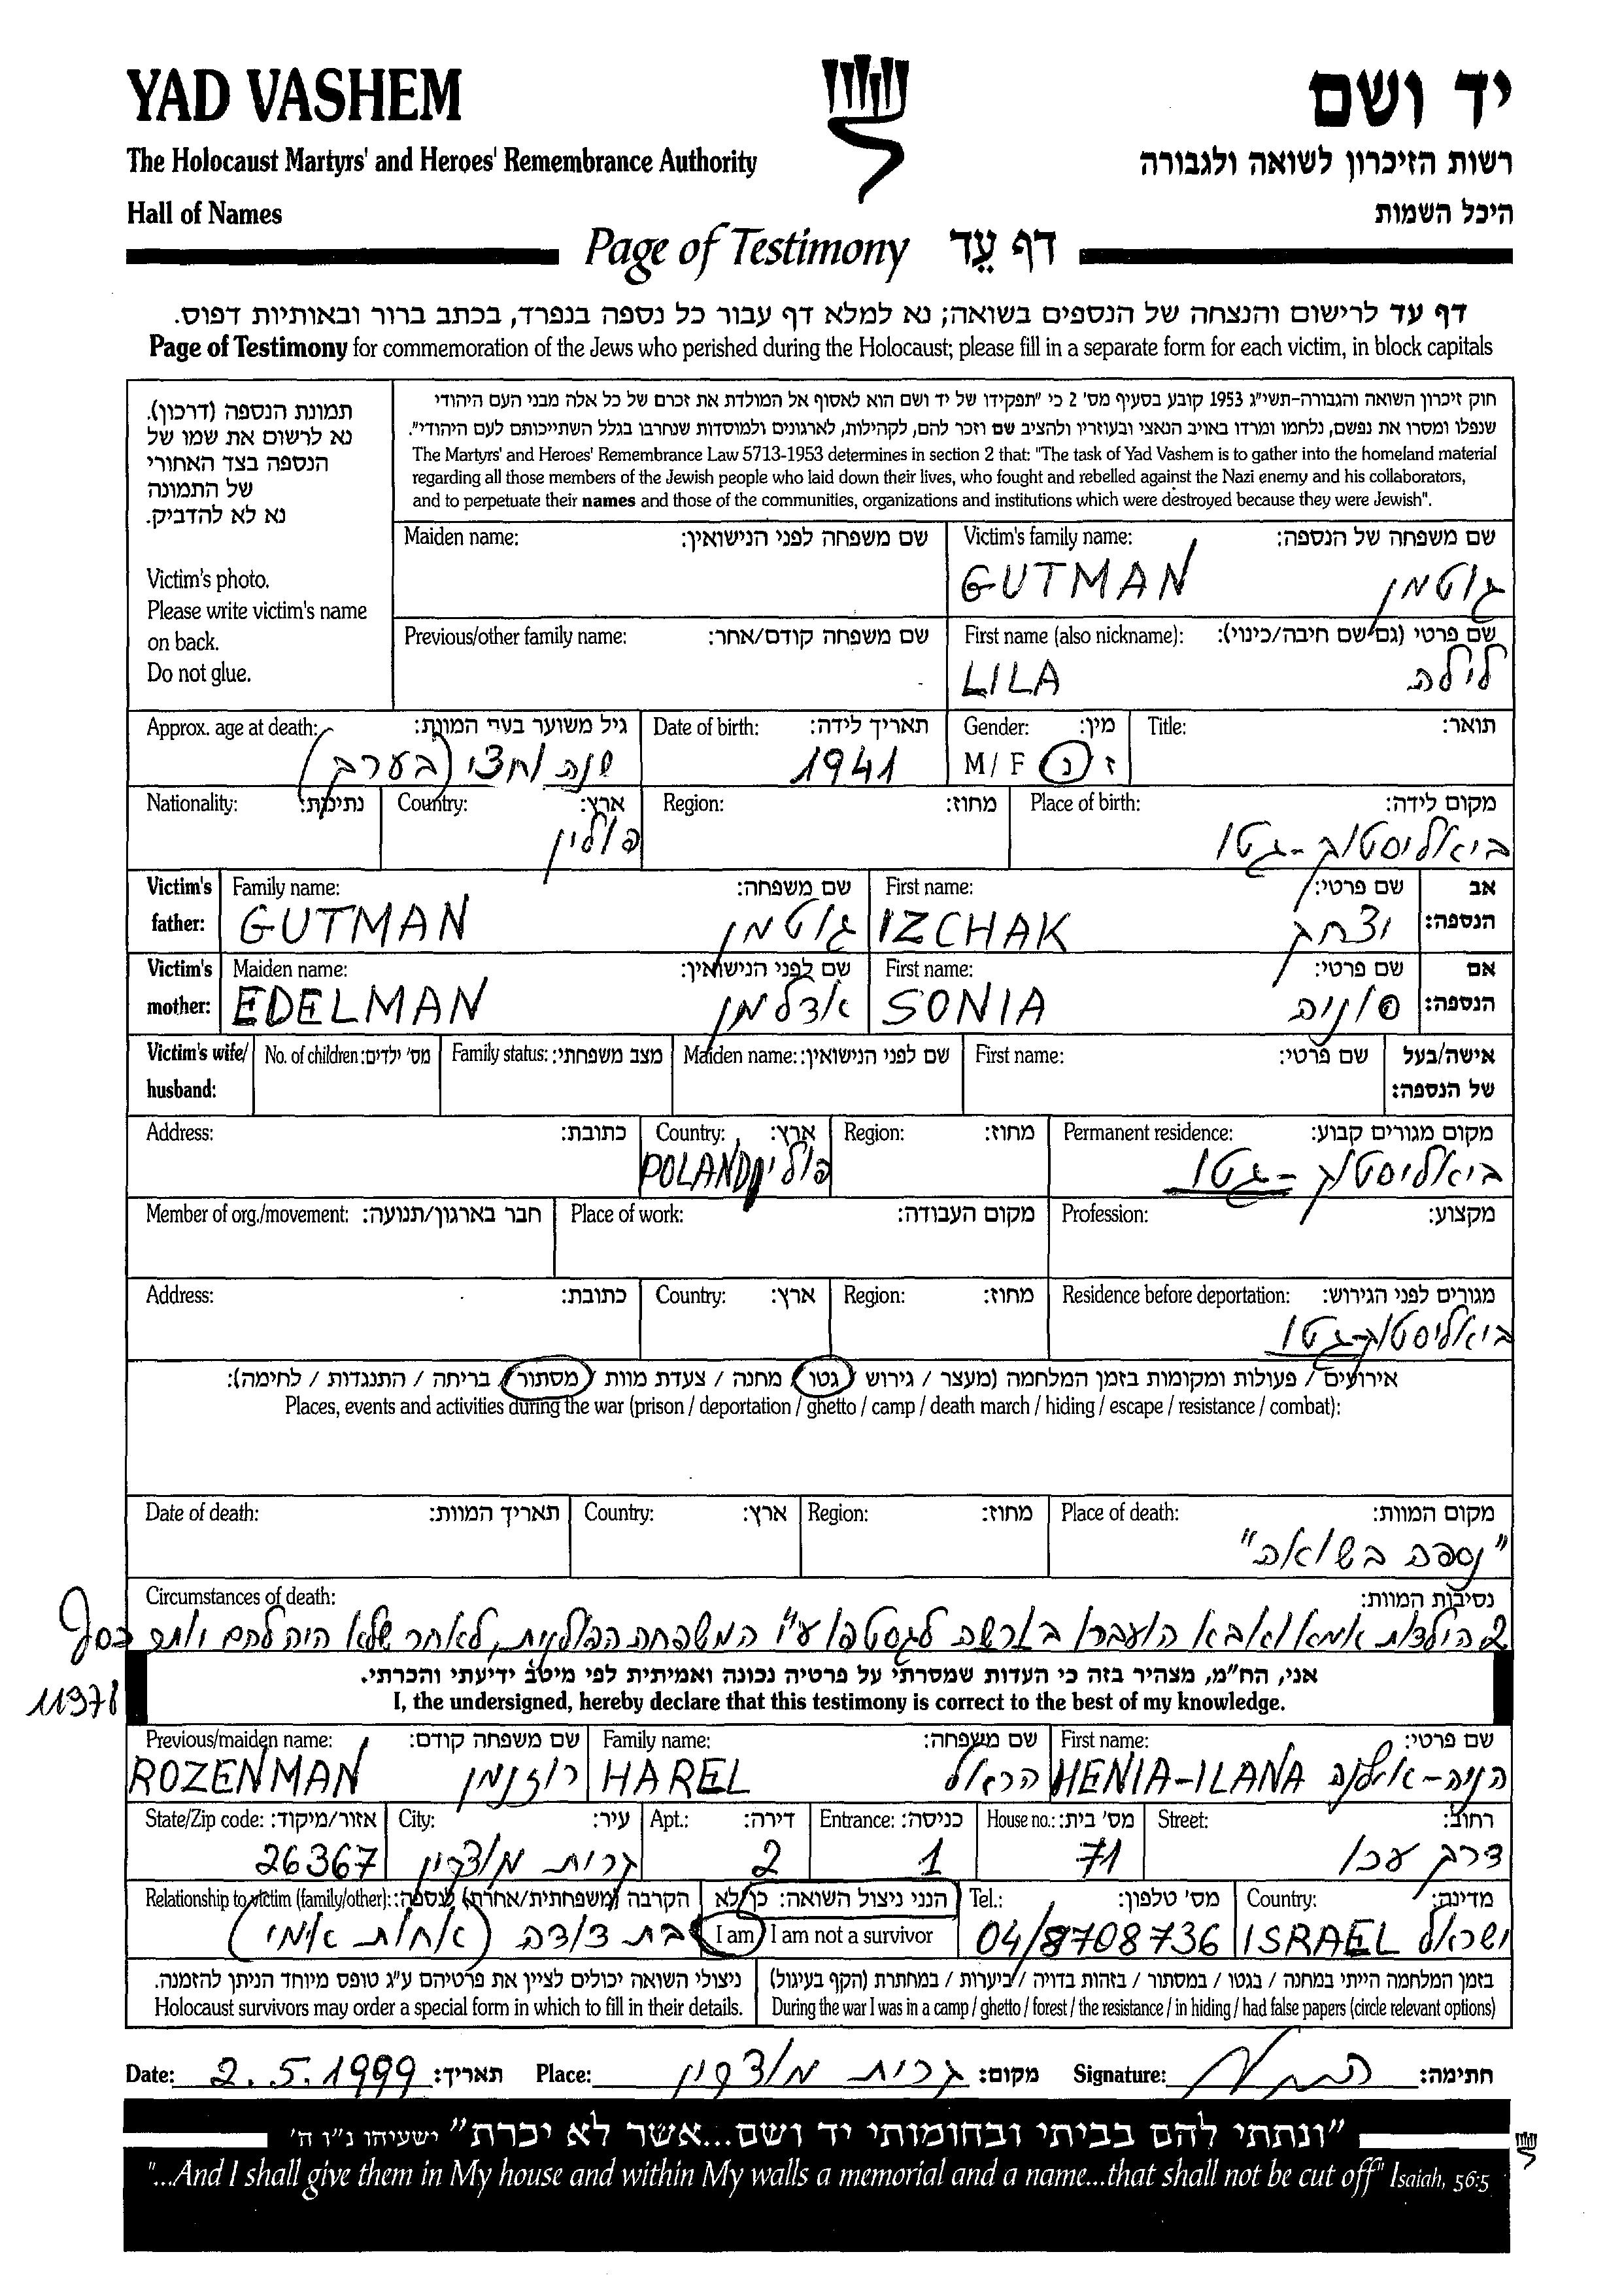 YAD VASHEM
יד ושם
The Holocaust Martyrs' and Heroes' Remembrance Authority
רשות הזיכרון לשואה ולגבורה
Hall of Names
היכל השמות
Page of Testimony דף עֵד
דף עד לרישום והנצחה של הנספים בשואה; נא למלא דף עבור כל נספה בנפרד, בכתב ברור ובאותיות דפוס.
Page of Testimony for commemoration of the Jews who perished during the Holocaust; please fill in a separate form for each victim, in block capitals
תמונת הנספה (דרכון).
נא לרשום את שמו של
הנספה בצד האחורי
של התמונה
נא לא להדביק.
Victim's photo.
Please write victim's name
on back.
Do not glue.
חוק זיכרון השואה והגבורה-תשי"ג 1953 קובע בסעיף מס' 2 כי "תפקידו של יד ושם הוא לאסוף אל המולדת את זכרם של כל אלה מבני העם היהודי
שנפלו ומסרו את נפשם, נלחמו ומרדו באויב הנאצי ובעוזריו ולהציב שם וזכר להם, לקהילות, לארגונים ולמוסדות שנחרבו בגלל השתייכותם לעם היהודי".
The Martyrs' and Heroes' Remembrance Law 5713-1953 determines in section 2 that: "The task of Yad Vashem is to gather into the homeland material
regarding all those members of the Jewish people who laid down their lives, who fought and rebelled against the Nazi enemy and his collaborators,
and to perpetuate their names and those of the communities, organizations and institutions which were destroyed because they were Jewish".
Maiden name: שם משפחה לפני הנישואין:
Victim's family name: שם משפחה של הנספה:
GUTMAN גוטמן
Previous/other family name: שם משפחה קודם/אחר:
First name (also nickname): שם פרטי (גם שם חיבה/כינוי):
LILA לילה
Approx. age at death: גיל משוער בעת המוות:
שנה וחצי (בערך)
Date of birth: תאריך לידה:
1941
Gender: מין:
M / F ז נ
Title: תואר:
Nationality: נתינות:
Country: ארץ:
פולין
Region: מחוז:
Place of birth: מקום לידה:
ביאליסטוק-גטו
Victim's father: Family name: שם משפחה:
GUTMAN גוטמן
First name: שם פרטי: אב הנספה:
IZCHAK יצחק
Victim's mother: Maiden name: שם לפני הנישואין:
EDELMAN אדלמן
First name: שם פרטי: אם הנספה:
SONIA סוניה
Victim's wife/ husband: No. of children: מס' ילדים: Family status: מצב משפחתי: Maiden name: שם לפני הנישואין: First name: שם פרטי: אישה/בעל של הנספה:
Address: כתובת:
Country: ארץ:
POLAND פולין
Region: מחוז:
Permanent residence: מקום מגורים קבוע:
ביאליסטוק-גטו
Member of org./movement: חבר בארגון/תנועה: Place of work: מקום העבודה: Profession: מקצוע:
Address: כתובת: Country: ארץ: Region: מחוז: Residence before deportation: מגורים לפני הגירוש:
ביאליסטוק-גטו
אירועים / פעולות ומקומות בזמן המלחמה (מעצר / גירוש / גטו / מחנה / צעדת מוות / מסתור / בריחה / התנגדות / לחימה):
Places, events and activities during the war (prison / deportation / ghetto / camp / death march / hiding / escape / resistance / combat):
Date of death: תאריך המוות: Country: ארץ: Region: מחוז: Place of death: מקום המוות:
"נספה בשואה"
Circumstances of death: נסיבות המוות:
2 הילדות אמא ואבא הועברו בורשה לגסטפו ע"י המשפחה הפולנית, לאחר שלא היה להם יותר כסף
11376
אני, הח"מ, מצהיר בזה כי העדות שמסרתי על פרטיה נכונה ואמיתית לפי מיטב ידיעתי והכרתי.
I, the undersigned, hereby declare that this testimony is correct to the best of my knowledge.
Previous/maiden name: שם משפחה קודם:
ROZENMAN רוזנמן
Family name: שם משפחה:
HAREL הראל
First name: שם פרטי:
HENIA-ILANA הניה-אילנה
State/Zip code: אזור/מיקוד:
26367
City: עיר:
קרית מוצקין
Apt.: דירה:
2
Entrance: כניסה:
1
House no.: מס' בית:
71
Street: רחוב:
דרך עכו
Relationship to victim (family/other): הקרבה (משפחתית/אחרת) לנספה:
בת דודה (אחות אמי)
הנני ניצול השואה: כן/לא
I am / I am not a survivor
Tel.: מס' טלפון:
04/8708736
Country: מדינה:
ISRAEL ישראל
ניצולי השואה יכולים לציין את פרטיהם ע"ג טופס מיוחד הניתן להזמנה.
Holocaust survivors may order a special form in which to fill in their details.
בזמן המלחמה הייתי במחנה / בגטו / במסתור / בזהות בדויה / ביערות / במחתרת (הקף בעיגול)
During the war I was in a camp / ghetto / forest / the resistance / in hiding / had false papers (circle relevant options)
Date: 2.5.1999 תאריך: Place: קרית מוצקין מקום: Signature: חתימה:
"ונתתי להם בביתי ובחומותי יד ושם...אשר לא יכרת" ישעיהו נ"ו ה'
"...And I shall give them in My house and within My walls a memorial and a name...that shall not be cut off" Isaiah, 56:5